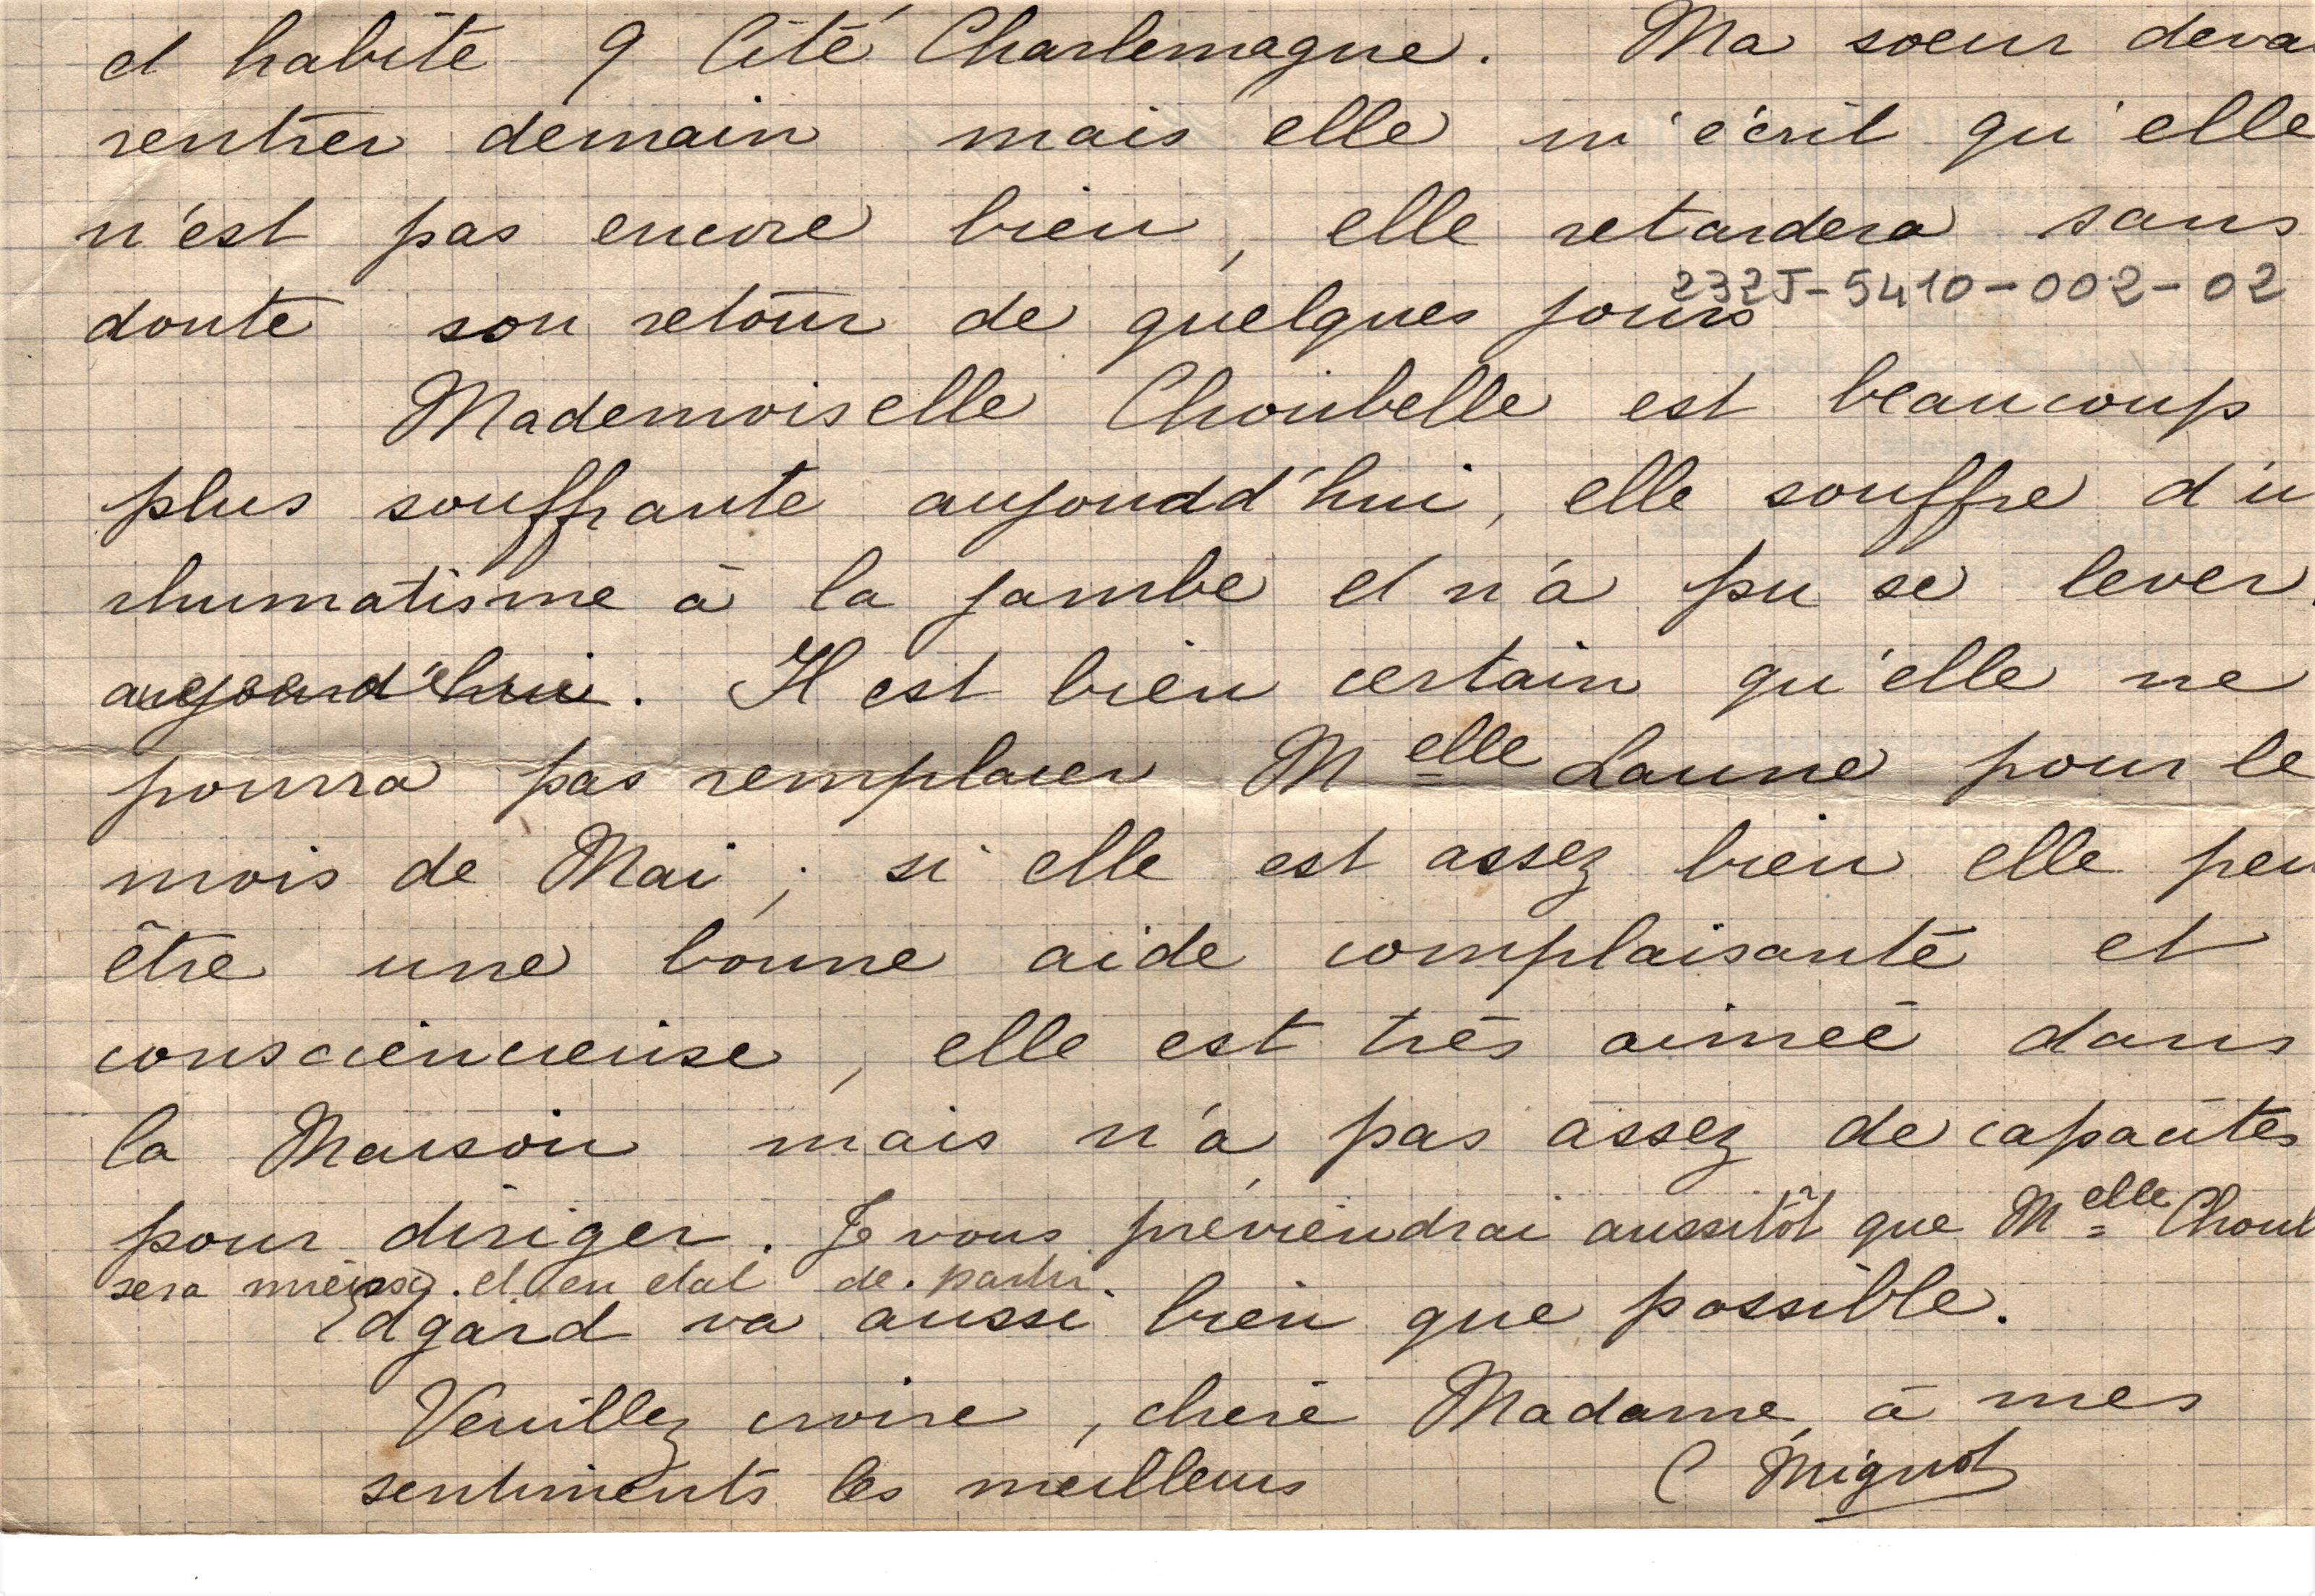 et habite 9 Cité Charlemagne. Ma soeur deva
rentrer demain mais elle m'écrit qu'elle
n'est pas encore bien, elle retardera sans
232J-5410-002-02
doute son retour de quelques jours
Mademoiselle Choubelle est beaucoup
plus souffrante aujoudd'hui, elle souffre d'u
rhumatisme à la jambe et n'a pu se lever.
aujourd'hui. Il est bien certain qu'elle ne
pourra pas remplacer Melle Laune pour le
mois de Mai ; si elle est assez bien elle peu
être une bonne aide complaisante et
consciencieuse, elle est très aimée dans
la Maison mais n'a pas assez de capacités
pour diriger. Je vous préviendrai aussitôt que Melle Choub
sera mieux. et en état de partir
Edgard va aussi bien que possible.
Veuillez croire, chère Madame, à mes
sentiments les meilleurs C Mignot